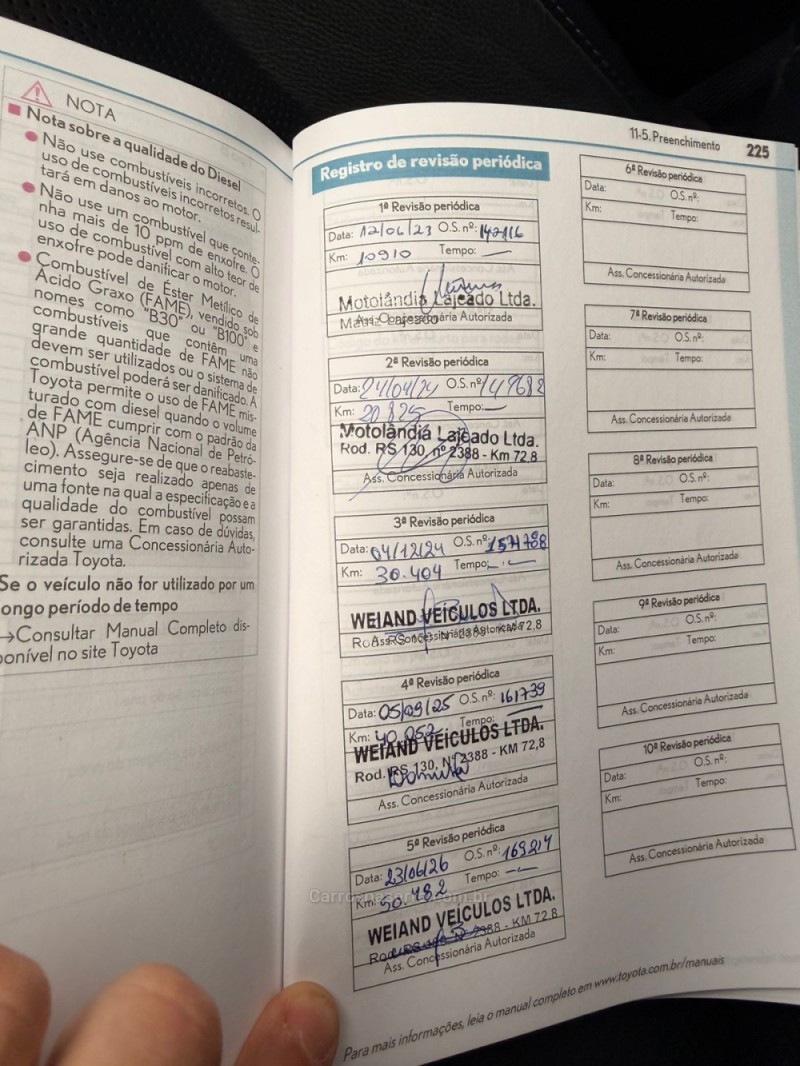 NOTA
Nota sobre a qualidade do Diesel
Não use combustíveis incorretos. O
uso de combustíveis incorretos resul-
tará em danos ao motor.
Não use um combustível que conte-
nha mais de 10 ppm de enxofre. O
uso de combustível com alto teor de
enxofre pode danificar o motor.
Combustível de Éster Metílico de
Ácido Graxo (FAME), vendido sob
nomes como "B30" ou "B100" e
combustíveis que contêm uma
grande quantidade de FAME não
devem ser utilizados ou o sistema de
combustível poderá ser danificado. A
Toyota permite o uso de FAME mis-
turado com diesel quando o volume
de FAME cumprir com o padrão da
ANP (Agência Nacional de Petró-
leo). Assegure-se de que o reabaste-
cimento seja realizado apenas de
uma fonte na qual a especificação e a
qualidade do combustível possam
ser garantidas. Em caso de dúvidas,
consulte uma Concessionária Auto-
rizada Toyota.
Se o veículo não for utilizado por um
longo período de tempo
→Consultar Manual Completo dis-
ponível no site Toyota
11-5. Preenchimento 225
Registro de revisão periódica
1ª Revisão periódica
Data: 12/06/23 O.S. nº: 142116
Km: 10910 Tempo: —
Motolândia Lajeado Ltda.
Ass. Concessionária Autorizada
2ª Revisão periódica
Data: 24/04/24 O.S. nº: 149682
Km: 20.825 Tempo: —
Motolândia Lajeado Ltda.
Rod. RS 130, nº 2388 - Km 72,8
Ass. Concessionária Autorizada
3ª Revisão periódica
Data: 04/12/24 O.S. nº:
Km: 30.404 Tempo: —
WEIAND VEÍCULOS LTDA.
Ass. Concessionária Autorizada
4ª Revisão periódica
Data: 05/09/25 O.S. nº: 161739
Km: 40.252 Tempo:
WEIAND VEÍCULOS LTDA.
Rod. RS 130, Nº 2388 - KM 72,8
Ass. Concessionária Autorizada
5ª Revisão periódica
Data: 23/06/26 O.S. nº: 169214
Km: 50.482 Tempo: —
WEIAND VEÍCULOS LTDA.
2388 - KM 72,8
Ass. Concessionária Autorizada
6ª Revisão periódica
Data: O.S. nº:
Km: Tempo:
Ass. Concessionária Autorizada
7ª Revisão periódica
Data: O.S. nº:
Km: Tempo:
Ass. Concessionária Autorizada
8ª Revisão periódica
Data: O.S. nº:
Km: Tempo:
Ass. Concessionária Autorizada
9ª Revisão periódica
Data: O.S. nº:
Km: Tempo:
Ass. Concessionária Autorizada
10ª Revisão periódica
Data: O.S. nº:
Km: Tempo:
Ass. Concessionária Autorizada
Para mais informações, leia o manual completo em www.toyota.com.br/manuais